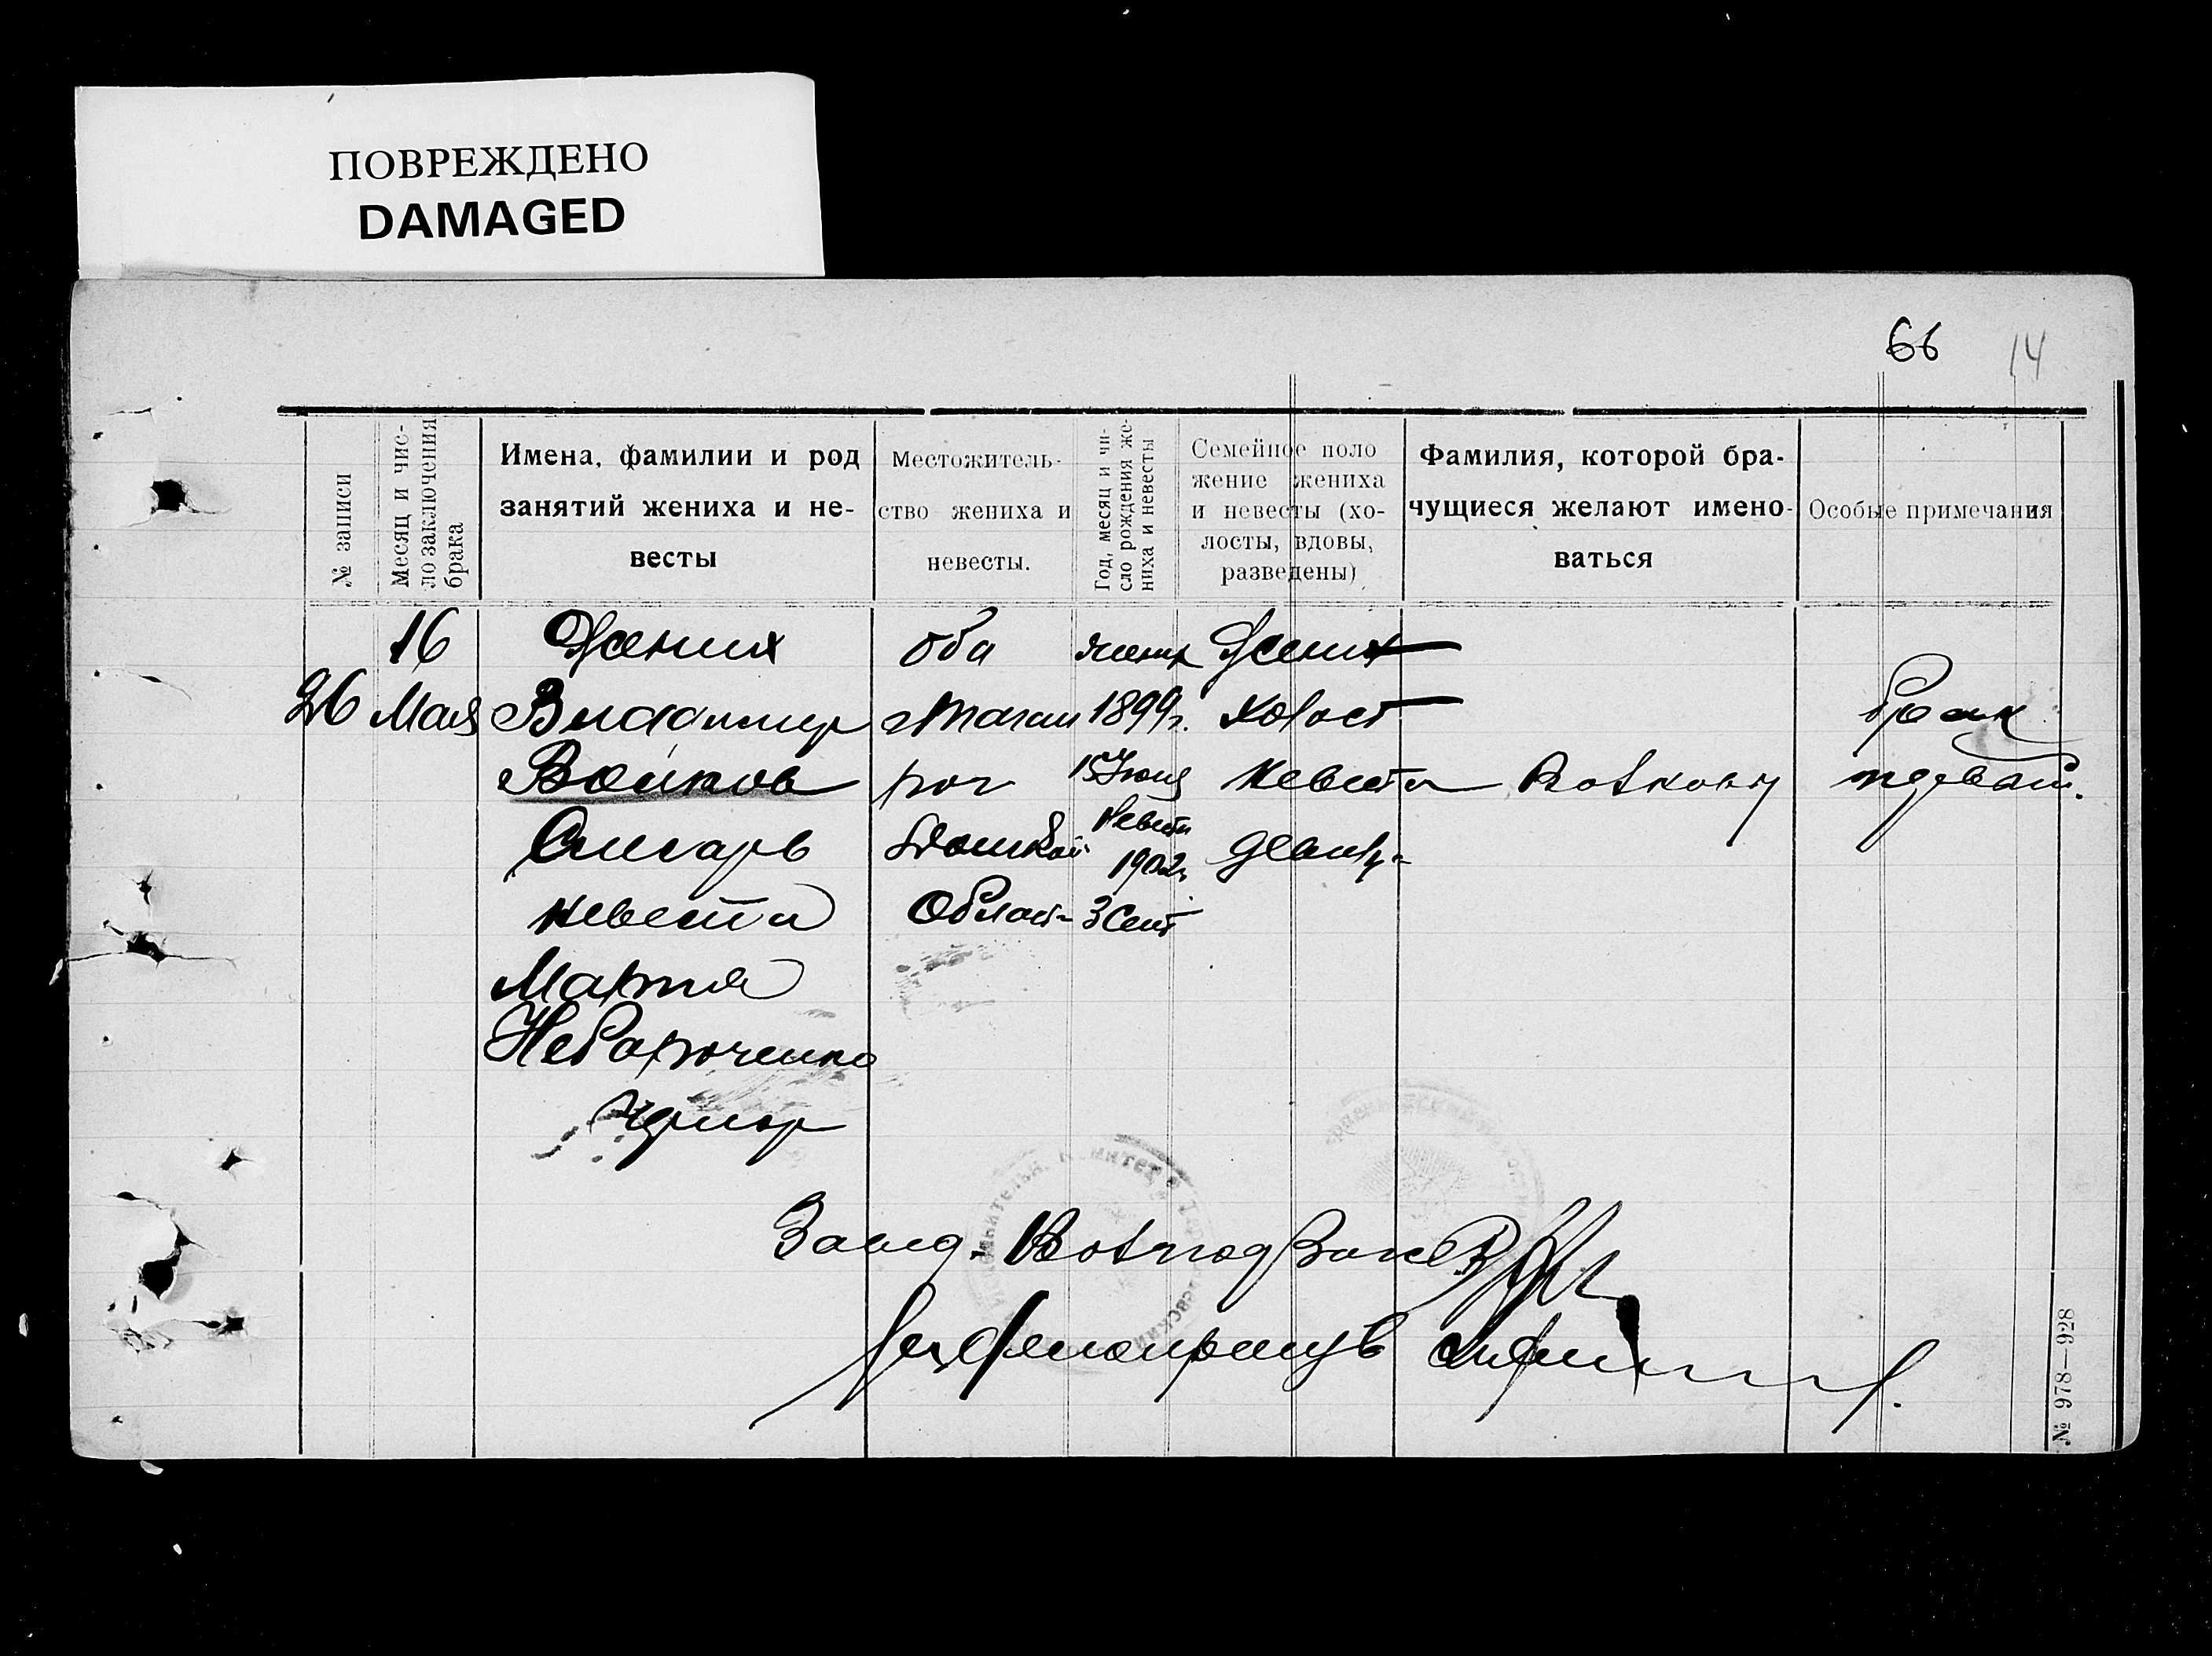 ПОВРЕЖДЕНО
DAMAGED
66 14
№ записи
Месяц и чис-
ло заключения
брака
Имена, фамилии и род
занятий жениха и не-
весты
Местожитель-
ство жениха и
невесты.
Год, месяц и чи-
сло рождения же-
ниха и невесты
Семейное поло
жение жениха
и невесты (хо-
лосты, вдовы,
разведены)
Фамилия, которой бра-
чущиеся желают имено-
ваться
Особые примечания
26
16
Мая
Жених
Владимир
Войков
Слесарь
невеста
Мария
Небораченко
оба
г Таган
рог
Донской
Област
жених
1899г.
15 Июня
Невеста
1902г
3 Сент
Жених
холост
Невеста
девица
Войковы
Брак
первый.
Завед.
№ 978—928